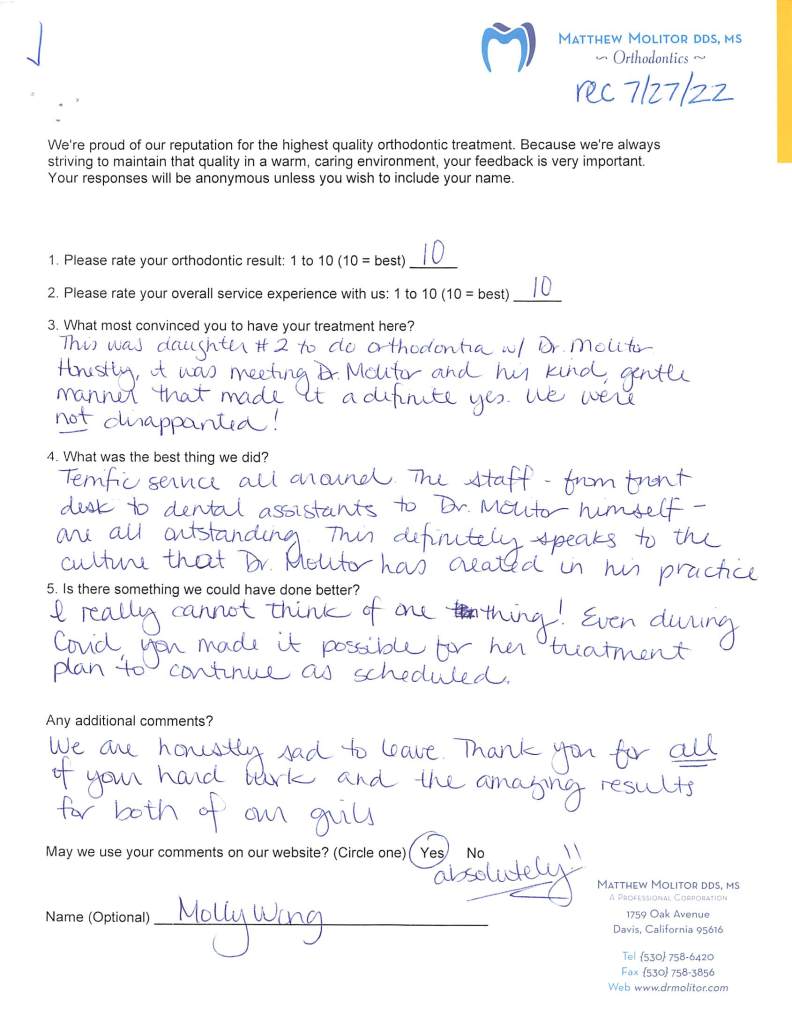 MATTHEW MOLITOR DDS, MS
~ Orthodontics ~
rec 7/27/22
We're proud of our reputation for the highest quality orthodontic treatment. Because we're always
striving to maintain that quality in a warm, caring environment, your feedback is very important.
Your responses will be anonymous unless you wish to include your name.
1. Please rate your orthodontic result: 1 to 10 (10 = best) 10
2. Please rate your overall service experience with us: 1 to 10 (10 = best) 10
3. What most convinced you to have your treatment here?
This was daughter #2 to do orthodontia w/ Dr. Molitor
Honestly, it was meeting Dr. Molitor and his kind, gentle
manner that made it a definite yes. We were
not disappointed!
4. What was the best thing we did?
Terrific service all around. The staff - from front
desk to dental assistants to Dr. Molitor himself -
are all outstanding. This definitely speaks to the
culture that Dr. Molitor has created in his practice
5. Is there something we could have done better?
I really cannot think of one thing! Even during
Covid, you made it possible for her treatment
plan to continue as scheduled.
Any additional comments?
We are honestly sad to leave. Thank you for all
of your hard work and the amazing results
for both of our girls
May we use your comments on our website? (Circle one) Yes No
absolutely!!
Name (Optional) Molly Wing
MATTHEW MOLITOR DDS, MS
A PROFESSIONAL CORPORATION
1759 Oak Avenue
Davis, California 95616
Tel {530} 758-6420
Fax {530} 758-3856
Web www.drmolitor.com